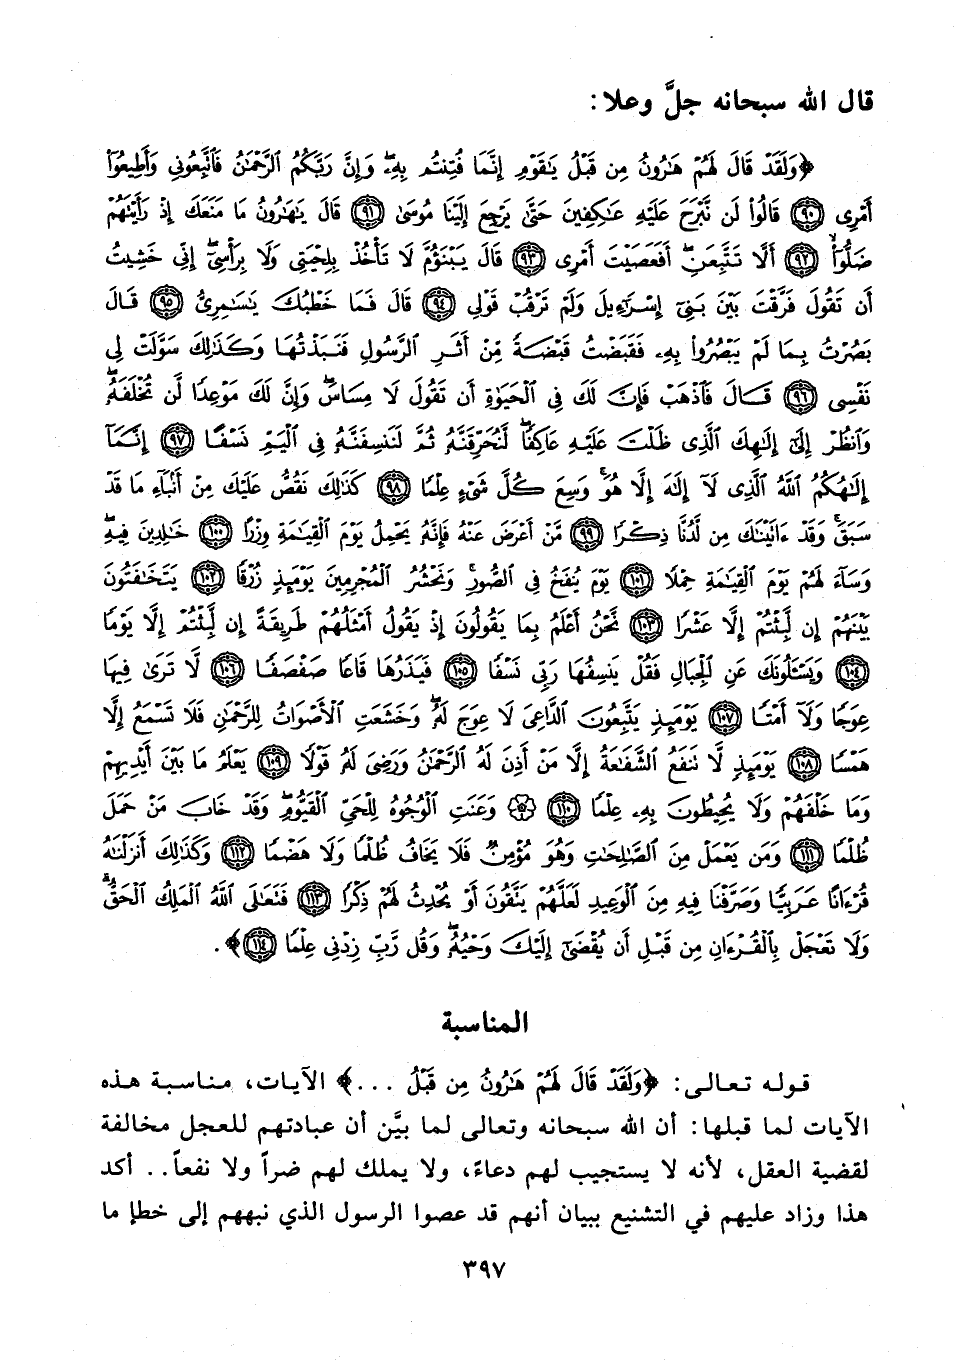 قال الله سبحانه جلَّ وعلا:
﴿وَلَقَدْ قَالَ لَهُمْ هَٰرُونُ مِن قَبْلُ يَٰقَوْمِ إِنَّمَا فُتِنتُم بِهِۦ ۖ وَإِنَّ رَبَّكُمُ ٱلرَّحْمَٰنُ فَٱتَّبِعُونِى وَأَطِيعُوٓا۟
أَمْرِى ﴿٩٠﴾ قَالُوا۟ لَن نَّبْرَحَ عَلَيْهِ عَٰكِفِينَ حَتَّىٰ يَرْجِعَ إِلَيْنَا مُوسَىٰ ﴿٩١﴾ قَالَ يَٰهَٰرُونُ مَا مَنَعَكَ إِذْ رَأَيْتَهُمْ
ضَلُّوٓا۟ ﴿٩٢﴾ أَلَّا تَتَّبِعَنِ ۖ أَفَعَصَيْتَ أَمْرِى ﴿٩٣﴾ قَالَ يَبْنَؤُمَّ لَا تَأْخُذْ بِلِحْيَتِى وَلَا بِرَأْسِىٓ ۖ إِنِّى خَشِيتُ
أَن تَقُولَ فَرَّقْتَ بَيْنَ بَنِىٓ إِسْرَٰٓءِيلَ وَلَمْ تَرْقُبْ قَوْلِى ﴿٩٤﴾ قَالَ فَمَا خَطْبُكَ يَٰسَٰمِرِىُّ ﴿٩٥﴾ قَالَ
بَصُرْتُ بِمَا لَمْ يَبْصُرُوا۟ بِهِۦ فَقَبَضْتُ قَبْضَةً مِّنْ أَثَرِ ٱلرَّسُولِ فَنَبَذْتُهَا وَكَذَٰلِكَ سَوَّلَتْ لِى
نَفْسِى ﴿٩٦﴾ قَالَ فَٱذْهَبْ فَإِنَّ لَكَ فِى ٱلْحَيَوٰةِ أَن تَقُولَ لَا مِسَاسَ ۖ وَإِنَّ لَكَ مَوْعِدًا لَّن تُخْلَفَهُۥ ۖ
وَٱنظُرْ إِلَىٰٓ إِلَٰهِكَ ٱلَّذِى ظَلْتَ عَلَيْهِ عَاكِفًا ۖ لَّنُحَرِّقَنَّهُۥ ثُمَّ لَنَنسِفَنَّهُۥ فِى ٱلْيَمِّ نَسْفًا ﴿٩٧﴾ إِنَّمَآ
إِلَٰهُكُمُ ٱللَّهُ ٱلَّذِى لَآ إِلَٰهَ إِلَّا هُوَ ۚ وَسِعَ كُلَّ شَىْءٍ عِلْمًا ﴿٩٨﴾ كَذَٰلِكَ نَقُصُّ عَلَيْكَ مِنْ أَنۢبَآءِ مَا قَدْ
سَبَقَ ۚ وَقَدْ ءَاتَيْنَٰكَ مِن لَّدُنَّا ذِكْرًا ﴿٩٩﴾ مَّنْ أَعْرَضَ عَنْهُ فَإِنَّهُۥ يَحْمِلُ يَوْمَ ٱلْقِيَٰمَةِ وِزْرًا ﴿١٠٠﴾ خَٰلِدِينَ فِيهِ ۖ
وَسَآءَ لَهُمْ يَوْمَ ٱلْقِيَٰمَةِ حِمْلًا ﴿١٠١﴾ يَوْمَ يُنفَخُ فِى ٱلصُّورِ ۚ وَنَحْشُرُ ٱلْمُجْرِمِينَ يَوْمَئِذٍ زُرْقًا ﴿١٠٢﴾ يَتَخَٰفَتُونَ
بَيْنَهُمْ إِن لَّبِثْتُمْ إِلَّا عَشْرًا ﴿١٠٣﴾ نَّحْنُ أَعْلَمُ بِمَا يَقُولُونَ إِذْ يَقُولُ أَمْثَلُهُمْ طَرِيقَةً إِن لَّبِثْتُمْ إِلَّا يَوْمًا
﴿١٠٤﴾ وَيَسْـَٔلُونَكَ عَنِ ٱلْجِبَالِ فَقُلْ يَنسِفُهَا رَبِّى نَسْفًا ﴿١٠٥﴾ فَيَذَرُهَا قَاعًا صَفْصَفًا ﴿١٠٦﴾ لَّا تَرَىٰ فِيهَا
عِوَجًا وَلَآ أَمْتًا ﴿١٠٧﴾ يَوْمَئِذٍ يَتَّبِعُونَ ٱلدَّاعِىَ لَا عِوَجَ لَهُۥ ۖ وَخَشَعَتِ ٱلْأَصْوَاتُ لِلرَّحْمَٰنِ فَلَا تَسْمَعُ إِلَّا
هَمْسًا ﴿١٠٨﴾ يَوْمَئِذٍ لَّا تَنفَعُ ٱلشَّفَٰعَةُ إِلَّا مَنْ أَذِنَ لَهُ ٱلرَّحْمَٰنُ وَرَضِىَ لَهُۥ قَوْلًا ﴿١٠٩﴾ يَعْلَمُ مَا بَيْنَ أَيْدِيهِمْ
وَمَا خَلْفَهُمْ وَلَا يُحِيطُونَ بِهِۦ عِلْمًا ﴿١١٠﴾ ۞ وَعَنَتِ ٱلْوُجُوهُ لِلْحَىِّ ٱلْقَيُّومِ ۖ وَقَدْ خَابَ مَنْ حَمَلَ
ظُلْمًا ﴿١١١﴾ وَمَن يَعْمَلْ مِنَ ٱلصَّٰلِحَٰتِ وَهُوَ مُؤْمِنٌ فَلَا يَخَافُ ظُلْمًا وَلَا هَضْمًا ﴿١١٢﴾ وَكَذَٰلِكَ أَنزَلْنَٰهُ
قُرْءَانًا عَرَبِيًّا وَصَرَّفْنَا فِيهِ مِنَ ٱلْوَعِيدِ لَعَلَّهُمْ يَتَّقُونَ أَوْ يُحْدِثُ لَهُمْ ذِكْرًا ﴿١١٣﴾ فَتَعَٰلَى ٱللَّهُ ٱلْمَلِكُ ٱلْحَقُّ ۗ
وَلَا تَعْجَلْ بِٱلْقُرْءَانِ مِن قَبْلِ أَن يُقْضَىٰٓ إِلَيْكَ وَحْيُهُۥ ۖ وَقُل رَّبِّ زِدْنِى عِلْمًا ﴿١١٤﴾﴾.
المناسبة
قوله تعالى: ﴿وَلَقَدْ قَالَ لَهُمْ هَٰرُونُ مِن قَبْلُ ...﴾ الآيات، مناسبة هذه
الآيات لما قبلها: أن الله سبحانه وتعالى لما بيَّن أن عبادتهم للعجل مخالفة
لقضية العقل، لأنه لا يستجيب لهم دعاءً، ولا يملك لهم ضراً ولا نفعاً.. أكد
هذا وزاد عليهم في التشنيع ببيان أنهم قد عصوا الرسول الذي نبههم إلى خطإ ما
٣٩٧